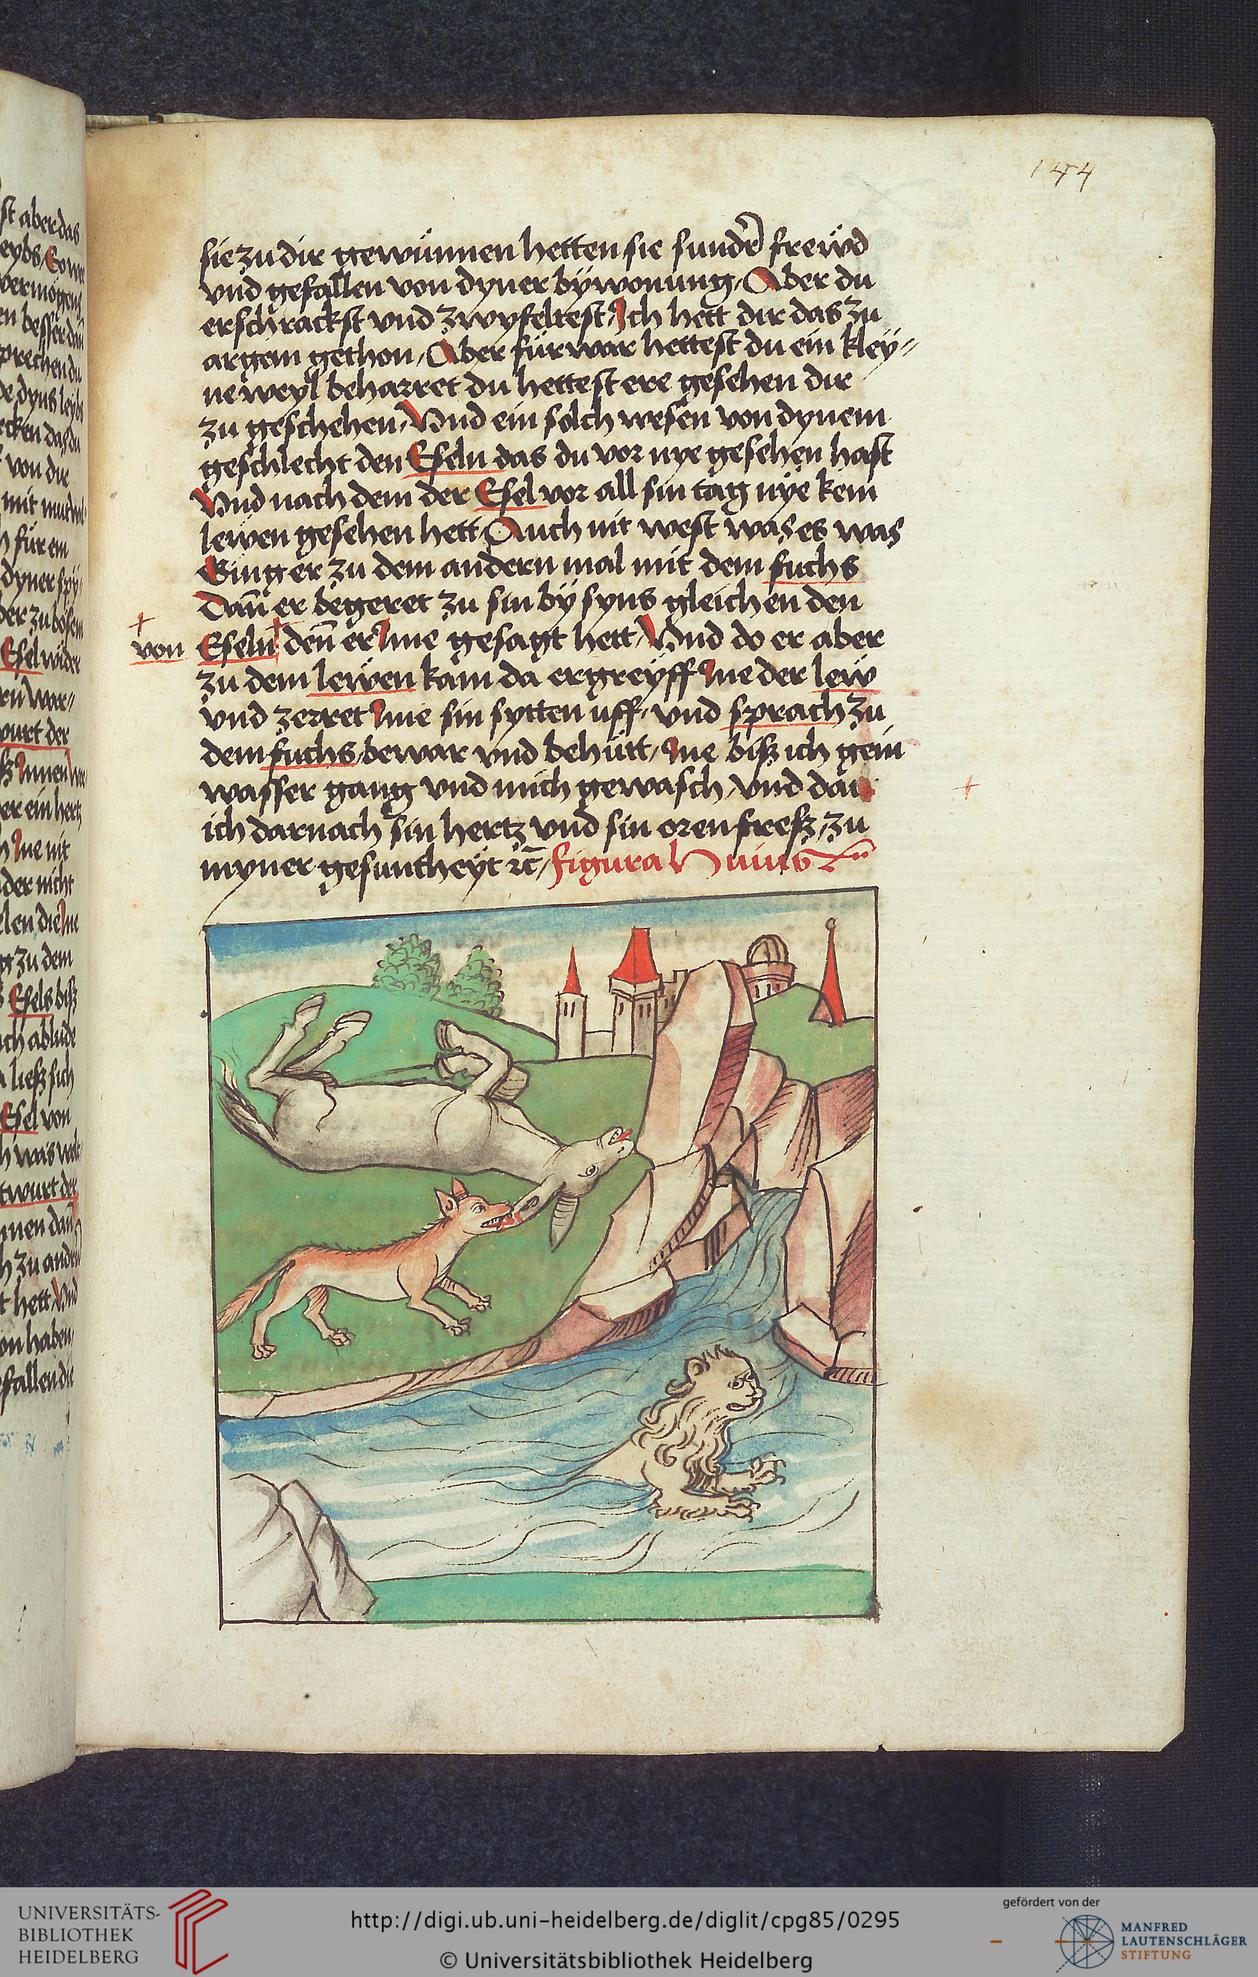 144
sie zu dir gewünnen hetten sie sundr̄ frewd
vnd gefallen von dyner bÿwonung / Aber du
erschrackst vnd zwyfeltest / Ich hett dir das zu
argem gethon / Aber für war hettest du ein kley〃
ne weyl beharret du hettest ere gesehen dir
zu geschehen / Vnd ein solch wesen von dynem
geschlecht den Eseln das du vor nye gesehen hast
Vnd nach dem der Esel vor all sin tag nÿe kein
lewen gesehen hett / Auch nit west was es was
Ging er zu dem andern mal mit dem fuchs
Dan̄ er begeret zu sin bÿ syns gleichen den
von Eseln den̄ er Ime gesagt hett / Vnd do er aber
zu dem lewen kam da ergreÿff Ine der lew
vnd zerret Ime sin sytten uff / vnd sprach zu
dem fuchs bewar vnd behütt / Ine biß ich gein
wasser gang vnd mich gewasch / vnd das
ich darnach sin hertz vnd sin oren freß / zu
myner gesuntheyt ꝛc̄ / figura Huius
st aber das
von die
für ein
Esel wider
wurt der
der nicht
zu dem
Esels biß
ließ sich
Esel von
http://digi.ub.uni-heidelberg.de/diglit/cpg85/0295
© Universitätsbibliothek Heidelberg
UNIVERSITÄTS-
BIBLIOTHEK
HEIDELBERG
gefördert von der
MANFRED
LAUTENSCHLÄGER
STIFTUNG